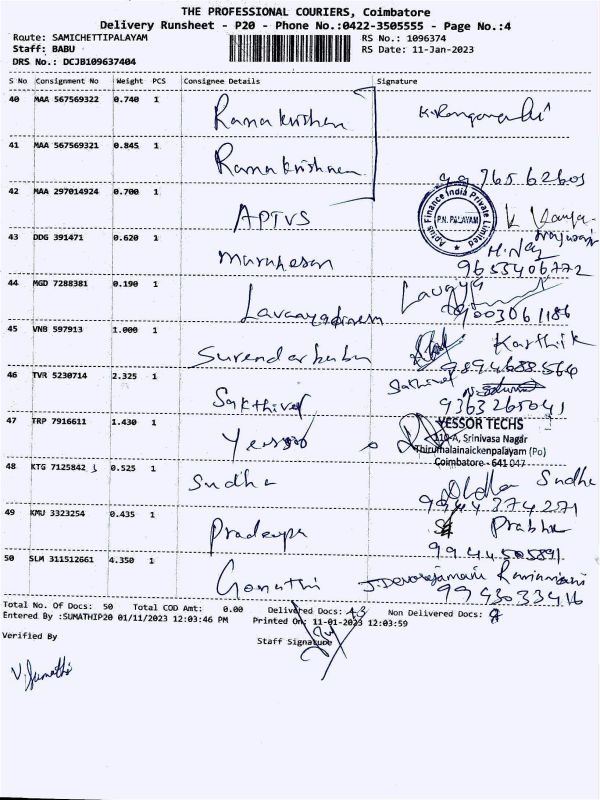 THE PROFESSIONAL COURIERS, Coimbatore
Delivery Runsheet - P20 - Phone No.:0422-3505555 - Page No.:4
Route: SAMICHETTIPALAYAM RS No.: 1096374
Staff: BABU RS Date: 11-Jan-2023
DRS No.: DCJB109637404
S No Consignment No Weight PCS Consignee Details Signature
40 MAA 567569322 0.740 1
Ramakrishan
41 MAA 567569321 0.845 1
Ramakrishnan 9976562603
42 MAA 297014924 0.700 1
APTVS
Aptus Finance India Private Limited
P.N. PALAYAM
43 DDG 391471 0.620 1
Murukesan 9655406772
44 MGD 7288381 0.190 1 Lavaya
9003061186
45 VNB 597913 1.000 1 Karthik
Surendarbabu 9894688564
46 TVR 5230714 2.325 1 Sathivel
Sakthivel 9363265041
47 TRP 7916611 1.430 1 YESSOR TECHS
Yessor -A, Srinivasa Nagar
Thirumalainaickenpalayam (Po)
Coimbatore - 641 047
48 KTG 7125842 0.525 1 Sudha
Sudha 9944374271
49 KMU 3323254 0.435 1 Prabhu
Pradeepa 9944505891
50 SLM 311512661 4.350 1
Gomathi 9943033416
Total No. Of Docs: 50 Total COD Amt: 0.00 Delivered Docs: 43 Non Delivered Docs:
Entered By :SUMATHIP20 01/11/2023 12:03:46 PM Printed On: 11-01-2023 12:03:59
Staff Signature
Verified By
V. Sumathi